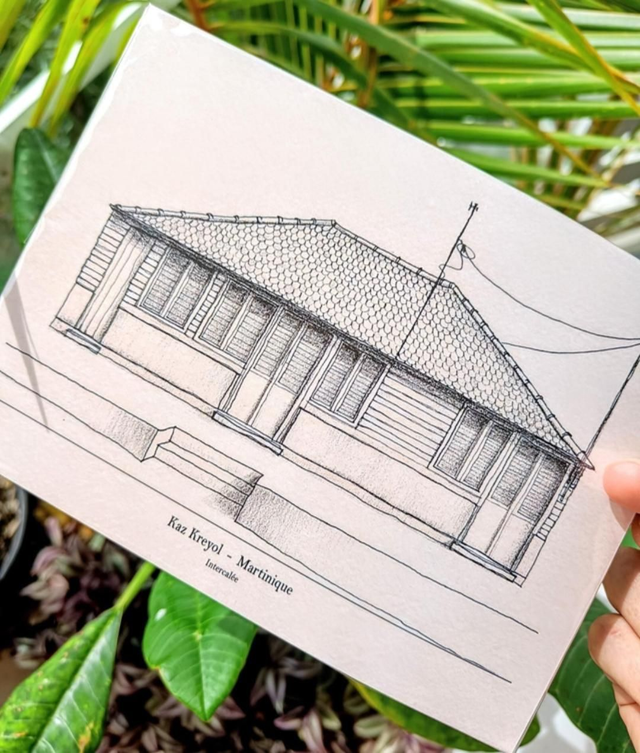 Kaz Kreyol - Martinique
Intercalée